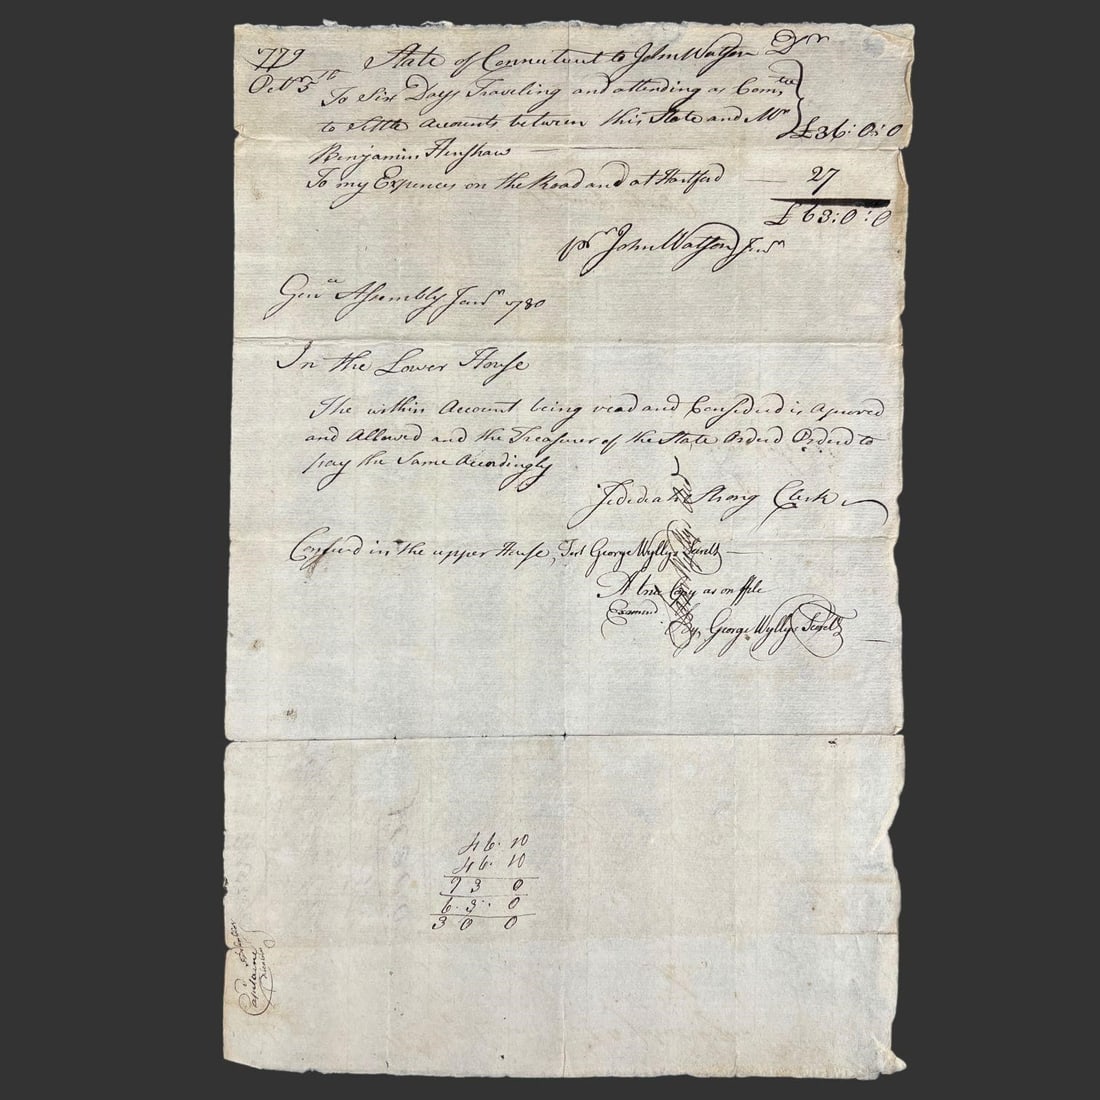 779 State of Connecticut to John Watson Dr
Octr 5th To Six Days Traveling and attending as Comtee
to Settle accounts between this State and Mr £36:0:0
Benjamin Henshaw
To my Expences on the Road and at Hartford — 27
£63:0:0
pr John Watson Junr
Genll Assembly Janr 1780
In the Lower House
The within Account being read and Considered is aproved
and Allowed and the Treasurer of the State Orderd Orderd to
pay the Same Accordingly
Jedidiah Strong Clerk
Concurd in the upper House, Test George Wyllys Secrety
A true Copy as on ffile
Examind
By George Wyllys Secrety
46. 10
46. 10
93 0
63: 0
30 0